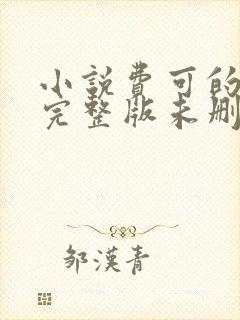 小說費可的
完整版未刪
鄒漢青